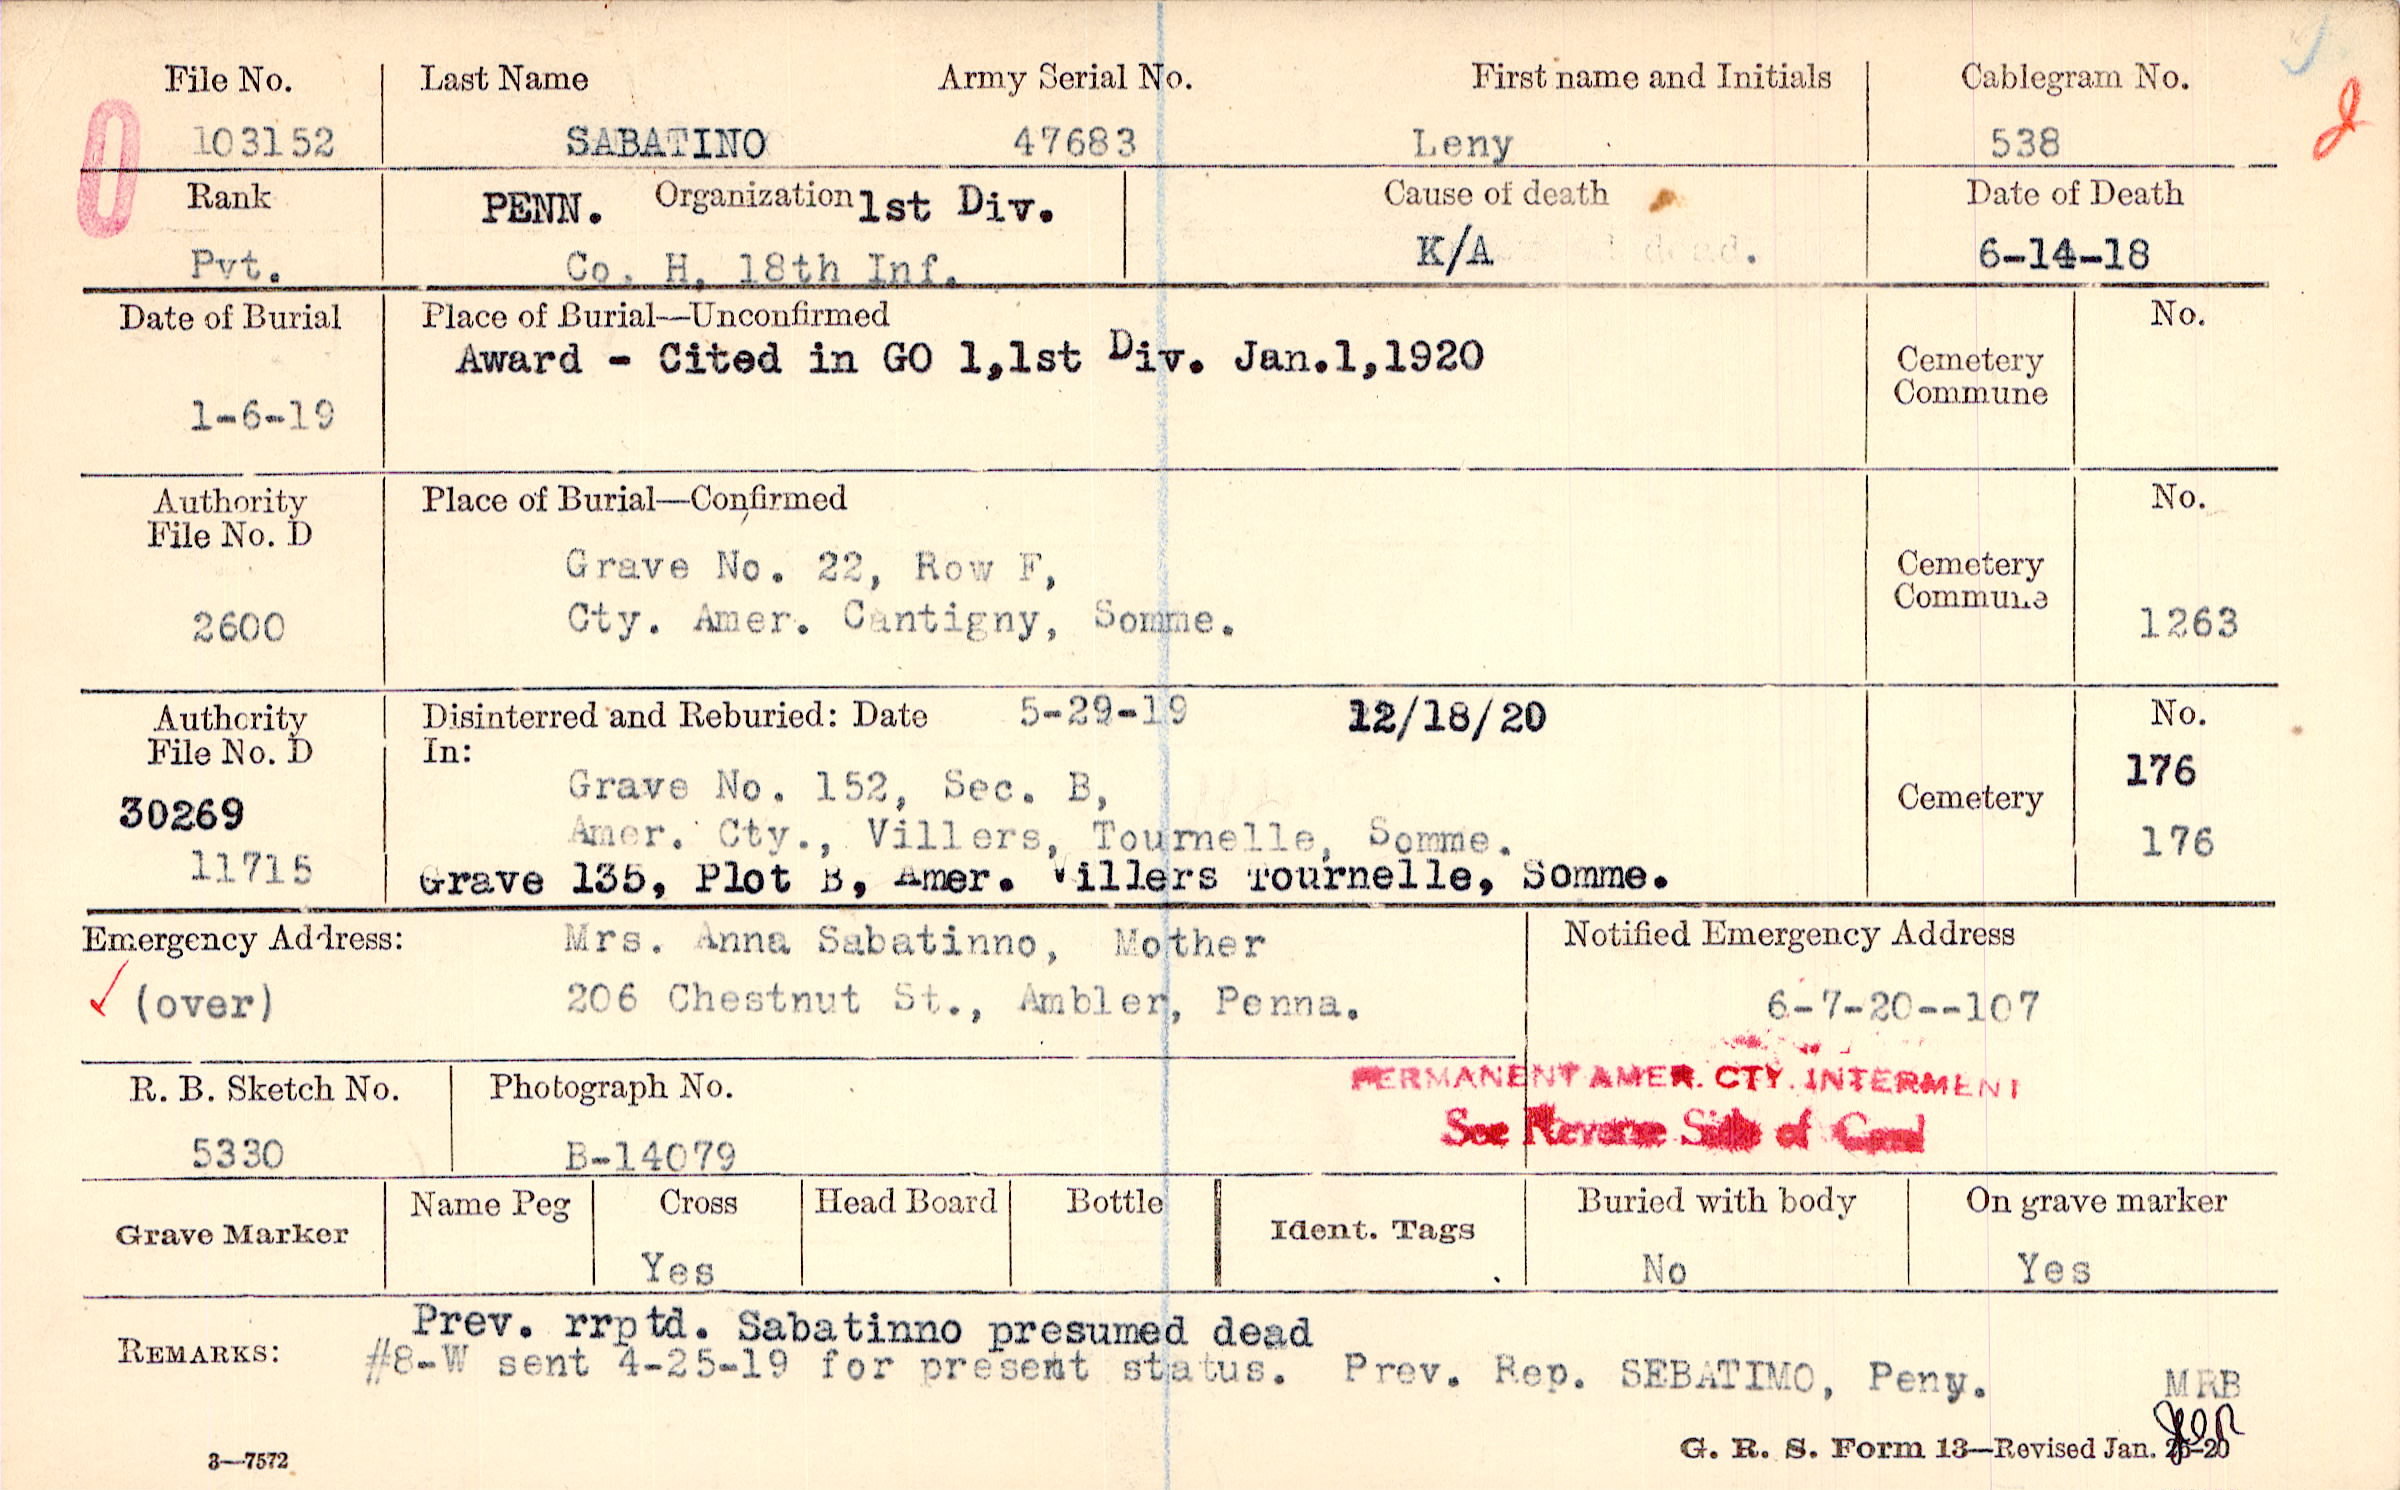 File No. Last Name Army Serial No. First name and Initials Cablegram No.
103152 SABATINO 47683 Leny 538
Rank PENN. Organization 1st Div. Cause of death Date of Death
Pvt. Co. H, 18th Inf. K/A dead. 6-14-18
Date of Burial Place of Burial—Unconfirmed No.
Award - Cited in GO 1,1st Div. Jan.1,1920 Cemetery
Commune
1-6-19
Authority Place of Burial—Confirmed No.
File No. D
Grave No. 22, Row F, Cemetery
Commune
2600 Cty. Amer. Cantigny, Somme. 1263
Authority Disinterred and Reburied: Date 5-29-19 12/18/20 No.
File No. D In: 176
30269 Grave No. 152, Sec. B, Cemetery
11715 Amer. Cty., Villers, Tournelle, Somme. 176
Grave 135, Plot B, Amer. Villers Tournelle, Somme.
Emergency Address: Mrs. Anna Sabatinno, Mother Notified Emergency Address
(over) 206 Chestnut St., Ambler, Penna. 6-7-20--107
R. B. Sketch No. Photograph No. PERMANENT AMER. CTY. INTERMENT
See Reverse Side of Card
5330 B-14079
Grave Marker Name Peg Cross Head Board Bottle Ident. Tags Buried with body On grave marker
Yes No Yes
Prev. rrptd. Sabatinno presumed dead
REMARKS: #8-W sent 4-25-19 for present status. Prev. Rep. SEBATIMO, Peny. MRB
3—7572 G. R. S. Form 13—Revised Jan. 26-20